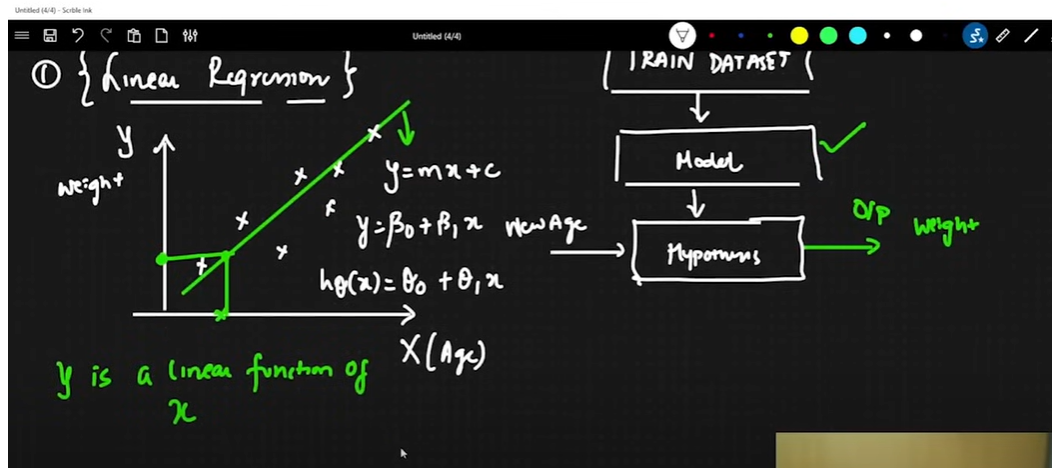 Untitled (4/4) - Scrble Ink
Untitled (4/4)
① { Linear Regression }
Y
weight
y=mx+c
y=β₀+β₁x
hθ(x)=θ₀+θ₁x
X (Age)
y is a linear function of
x
TRAIN DATASET
Model
New Age
Hypothesis
O/P
Weight